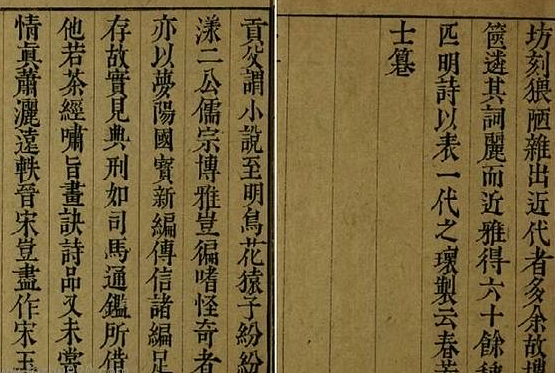 坊刻猥陋雜出近代者多余故
篋遴其詞麗而近雅得六十餘種
匹明詩以表一代之瓌製云春
士篹
貢父謂小說至明鳥花猿子紛紛
漾二公儒宗博雅豈徧嗜怪奇者
亦以夢陽國寳新編傳信諸編足
存故實見典刑如司馬通鑑所借
他若茶經嘯旨畫訣詩品又未嘗
情眞蕭灑遠軼晉宋豈盡作宋玉